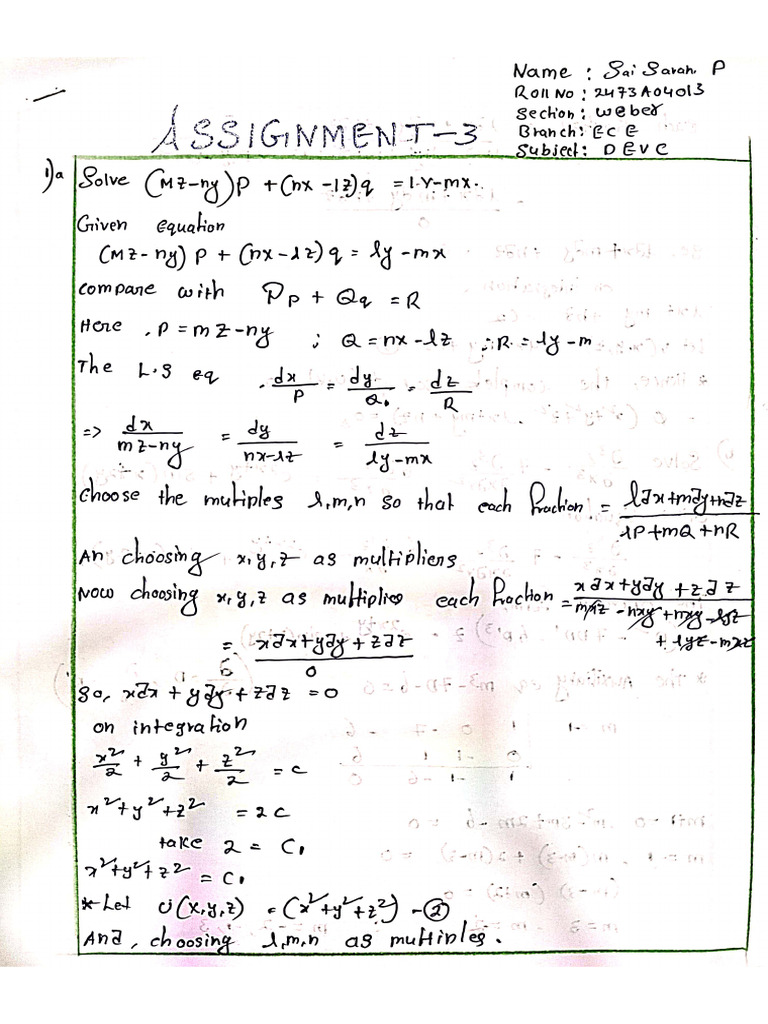 Name : Sai Sarah P
Roll No : 2473A04013
Section : Weber
Branch : ECE
Subject : DEVC
ASSIGNMENT-3
1)a Solve (Mz-ny)p + (nx-lz)q = l.y-mx.
Given equation
(Mz-ny) p + (nx-lz) q = ly-mx
compare with Pp + Qq = R
Here , P = mz-ny ; Q = nx-lz ; R = ly-m
The L.S eq . dx/P = dy/Q = dz/R
=> dx/mz-ny = dy/nx-lz = dz/ly-mx
choose the mutiples l,m,n so that each fraction = l∂x+m∂y+n∂z/lP+mQ+nR
An choosing x,y,z as multipliens
Now choosing x,y,z as multiplies each fraction = x∂x+y∂y+z∂z/mxz-nxy+nxy-lyz+lyz-mxz
= x∂x+y∂y+z∂z/0
So, x∂x + y∂y + z∂z = 0
on integration
x²/2 + y²/2 + z²/2 = c
x²+y²+z² = 2c
take 2 = C₁
x²+y²+z² = C₁
* Let U(x,y,z) = (x²+y²+z²) - ②
And , choosing l,m,n as multiples.